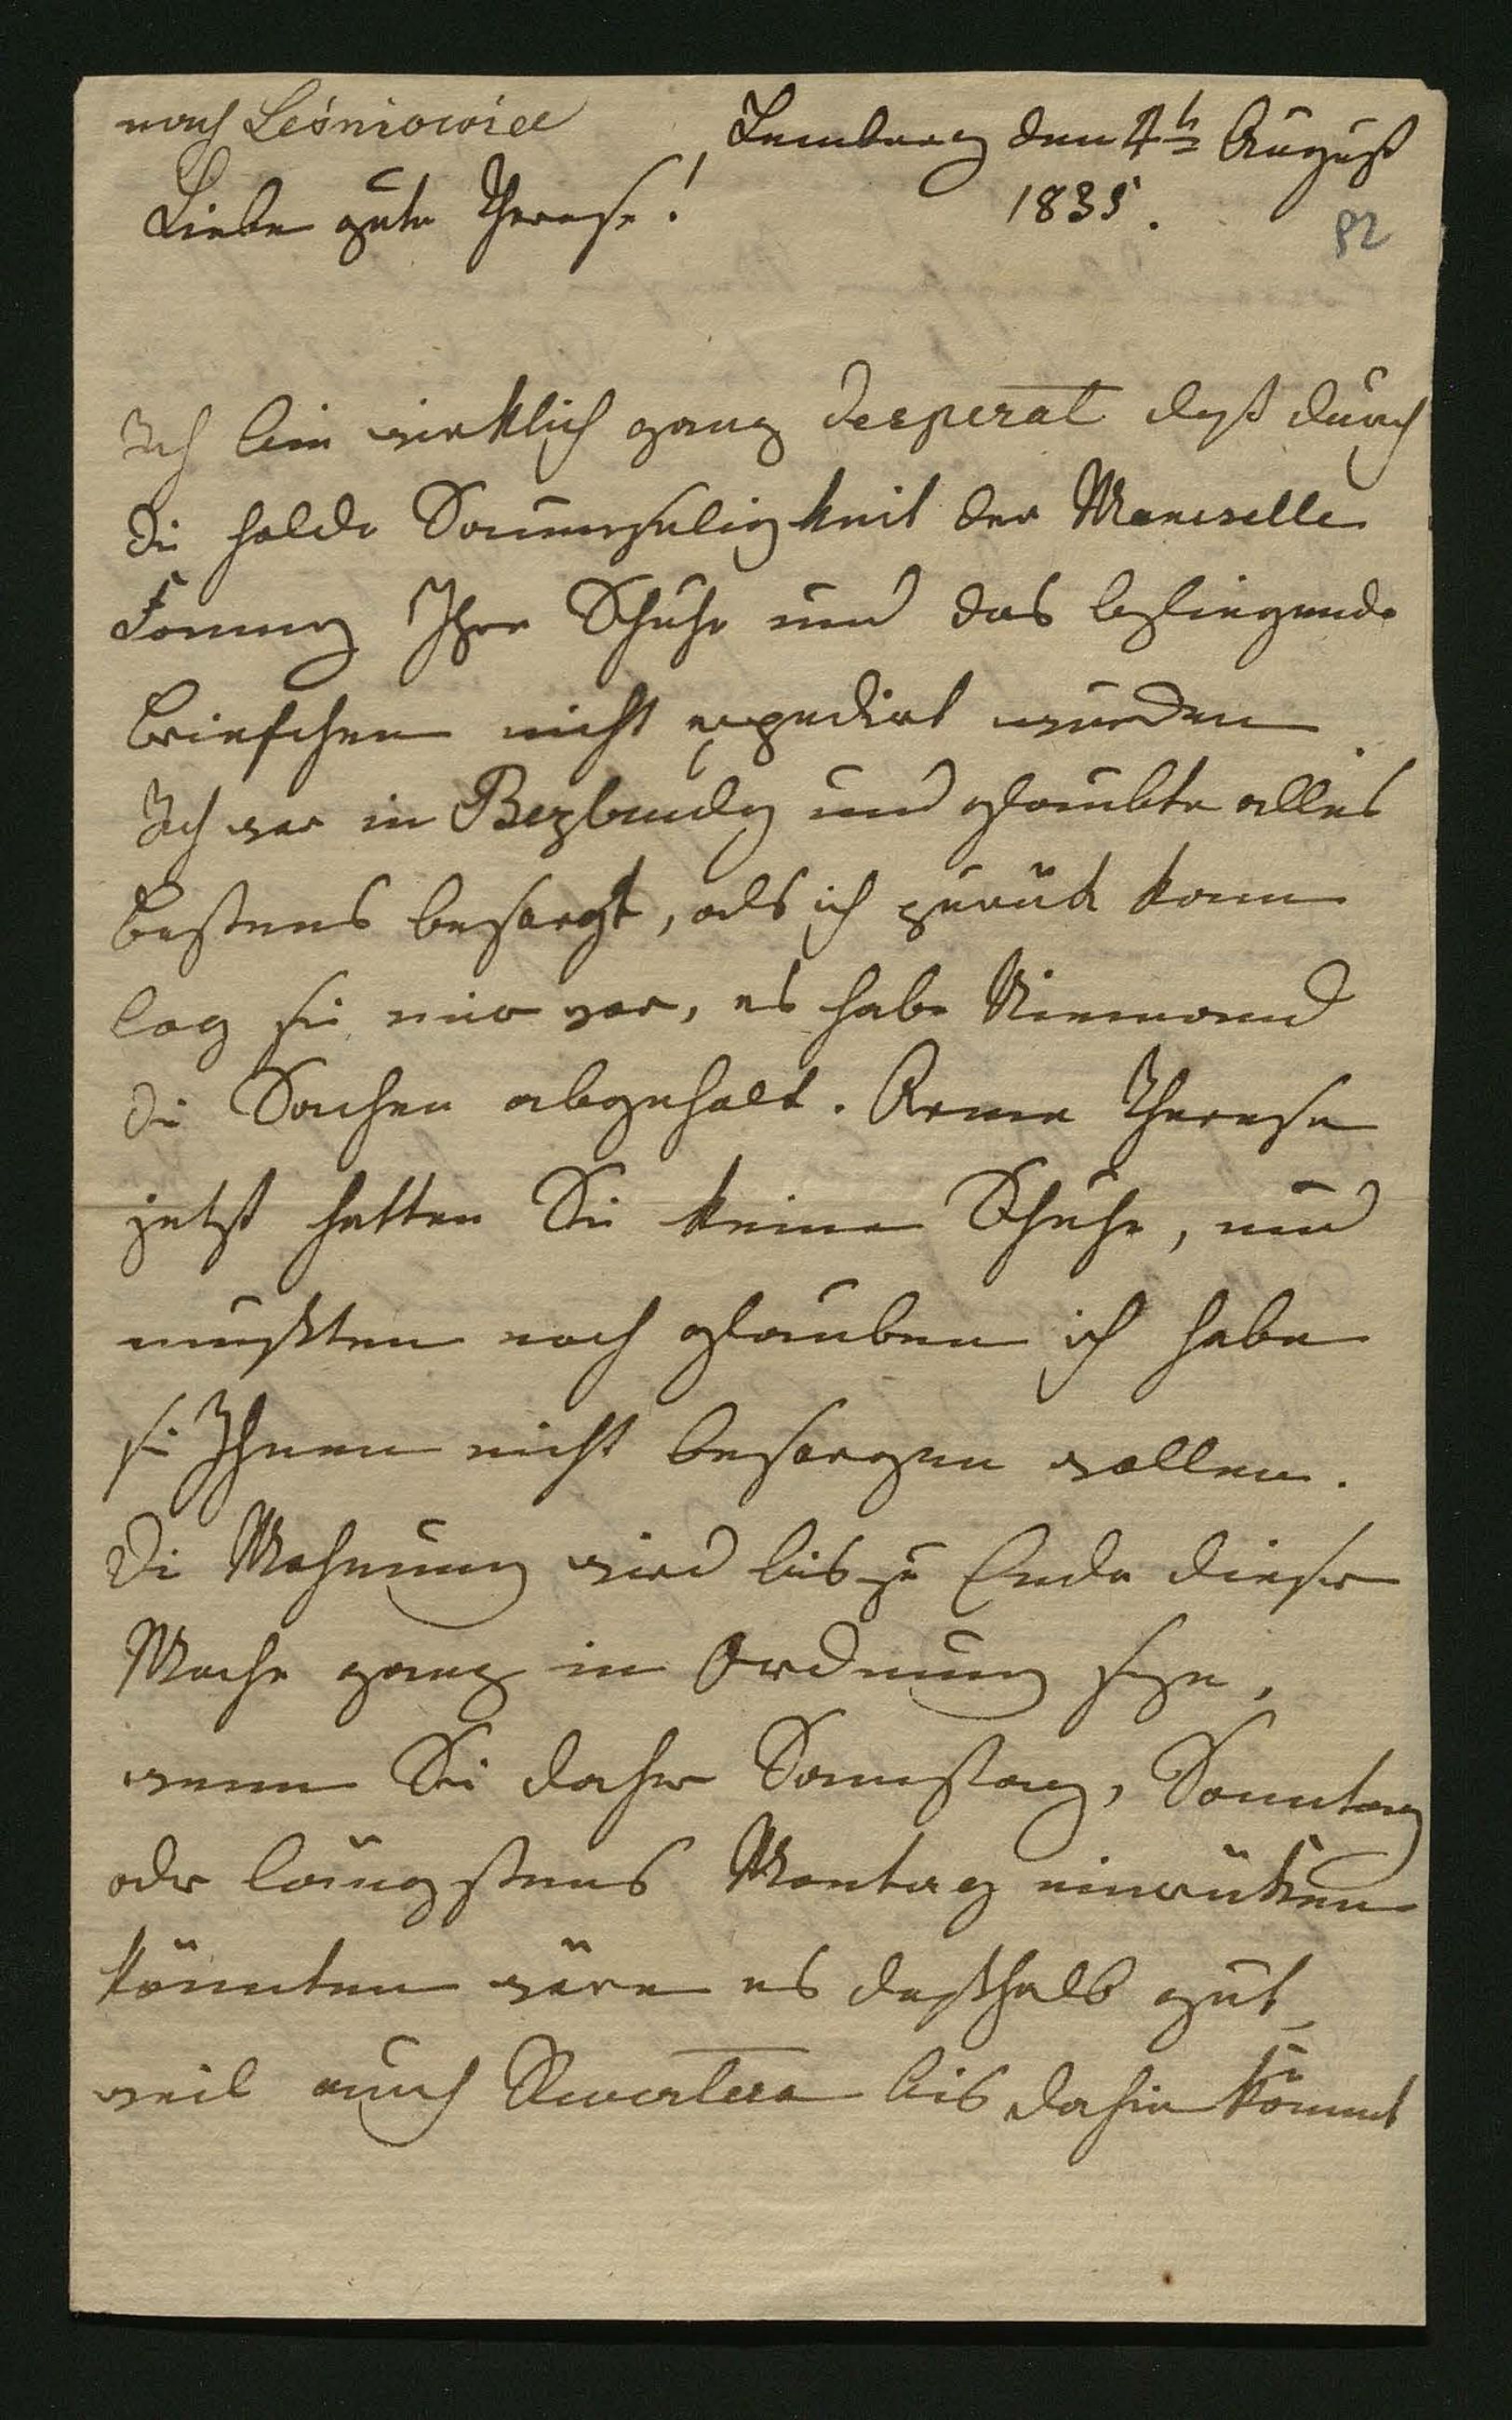 nach Leśniowice
Lemberg den 4t August
1835.
82
Liebe gute Therese!
Ich bin wirklich ganz desperat daß durch
die holde Saumseligkeit der Mamselle
Fanny Ihre Schuhe und das beiliegende
Briefchen nicht expedirt wurden.
Ich war in Bezbrudy und glaubte alles
bestens besorgt, als ich zurük kam
log sie mir vor, es habe Niemand
die Sachen abgeholt. Arme Therese
jetzt hatten Sie keine Schuhe, und
mußten noch glauben ich habe
sie Ihnen nicht besorgen wollen.
Die Wohnung wird bis zu Ende dieser
Woche ganz in Ordnung seyn,
wenn Sie daher Samstag, Sonntag
oder längstens Montag einrüken
könnten wäre es deßhalb gut,
weil auch bis dahin kömmt